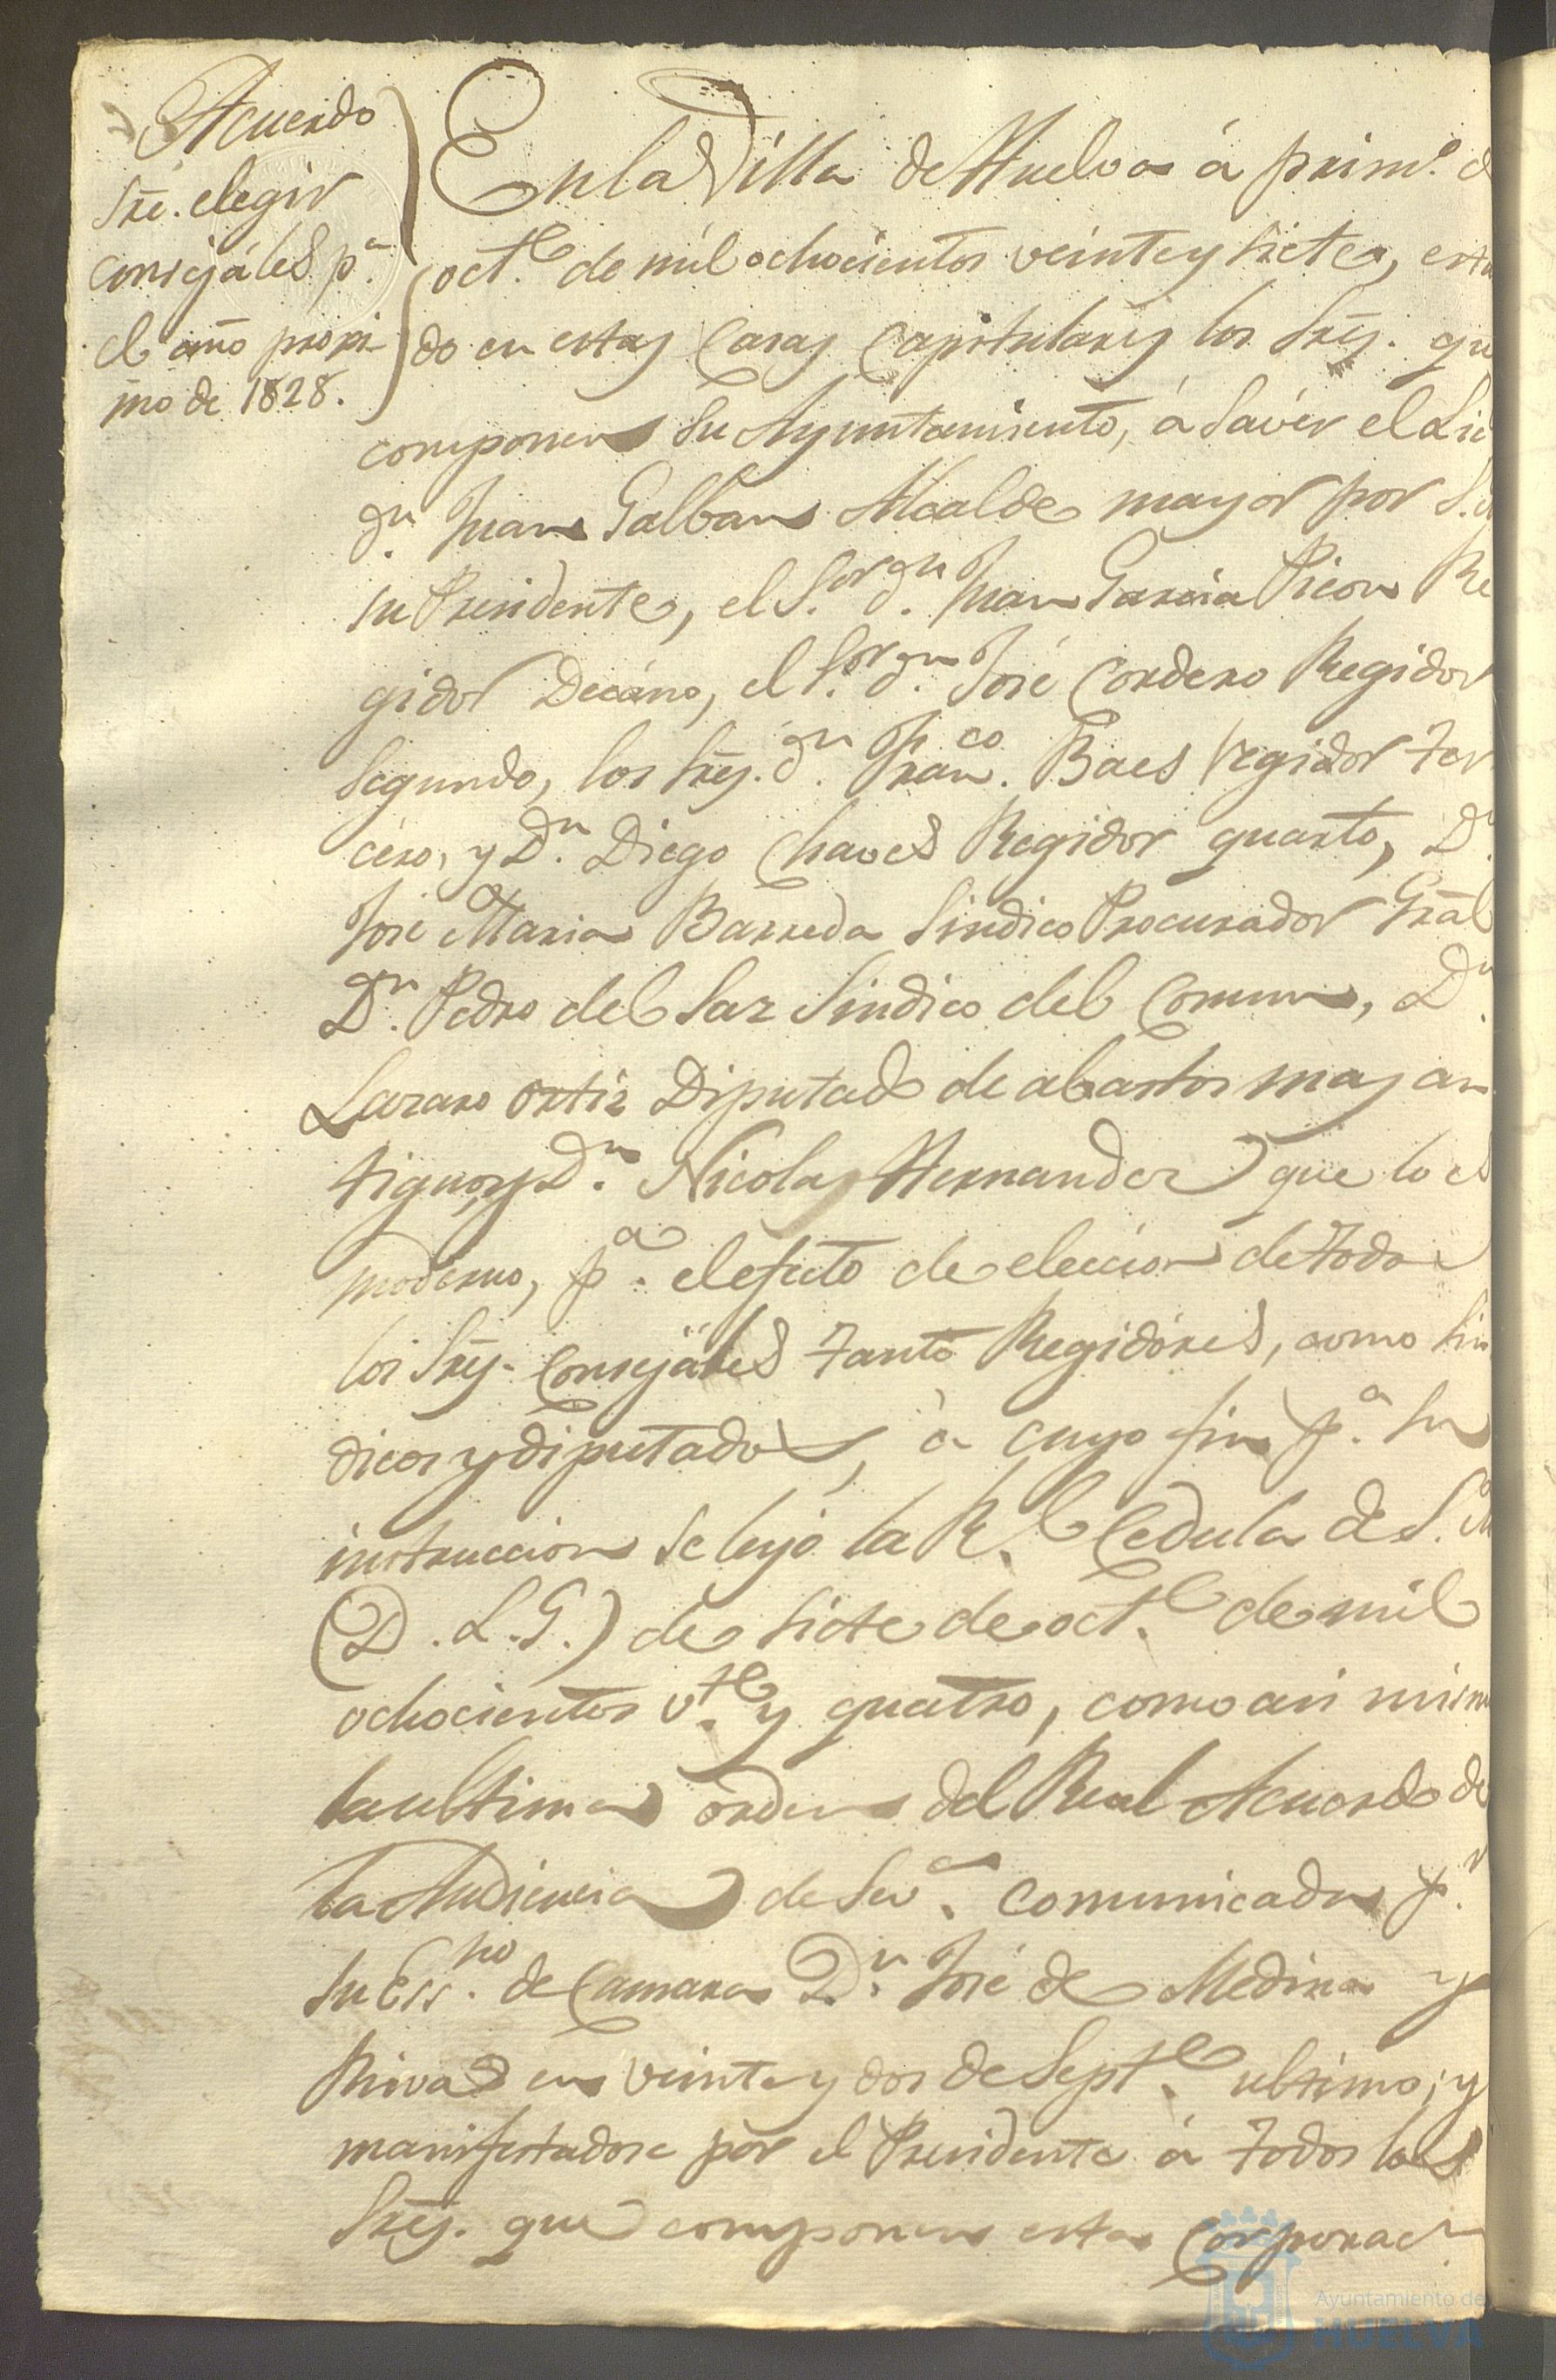 Acuerdo
sre. elegir
consejáles pª
el año proxi-
mo de 1828.
En la Villa de Huelva á prim.º d
oct.e de mil ochocientos veinte y siete, estn
do en estas Casas Capitulares los Sres. qu
componen su Ayuntamiento, á saver el Lic
dn. Juan Galban Alcalde mayor por S.
su Presidente, el S.or dn. Juan Garcia Picon Re
gidor Decáno, el S.or dn. José Cordero Regidor
Segundo, los Sres. dn. Fran.co Baes regidor ter
cero, y Dn. Diego Chaves Regidor quarto, Dn.
José Maria Barreda Sindico Procurador Gral
Dn. Pedro del Saz Sindico del Comun, Dn.
Lazaro Ortiz Diputado de abastos mas an
tiguo, y Dn. Nicolas Hernandez que lo es
moderno, pª. el efecto de eleccion de todos
los Sres. Consejáles tanto Regidóres, como Sin
dicos y diputados, á cuyo fin pª. su
instruccion se leyó la R.l Cedula de S. M
(D. L. G.) de siete de oct.e de mil
ochocientos v.te y quatro, como asi mismo
la ultima orden del Real Acuerdo de
la Audiencia de Sev.ª comunicada p.r
su Ess.no de Camara Dn. José de Medina y
Rivas en veinte y dos de Sept.e ultimo; y
manifestadose por el Presidente á todos los
Sres. que componen esta Corporac.n
Ayuntamiento de
HUELVA